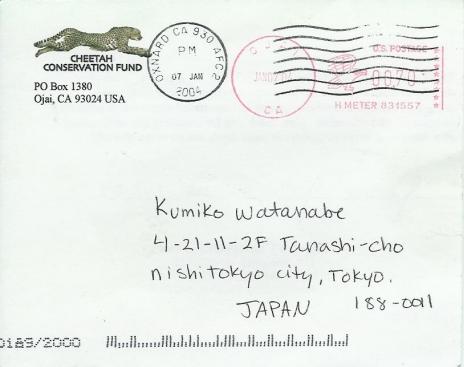 CHEETAH
CONSERVATION FUND
PO Box 1380
Ojai, CA 93024 USA
OXNARD CA 930 AFC 2
PM
07 JAN
2004
CA
U.S. POSTAGE
00.70
H METER 831557
Kumiko Watanabe
4-21-11-2F Tanashi-cho
nishitokyo city, Tokyo.
JAPAN 188-0011